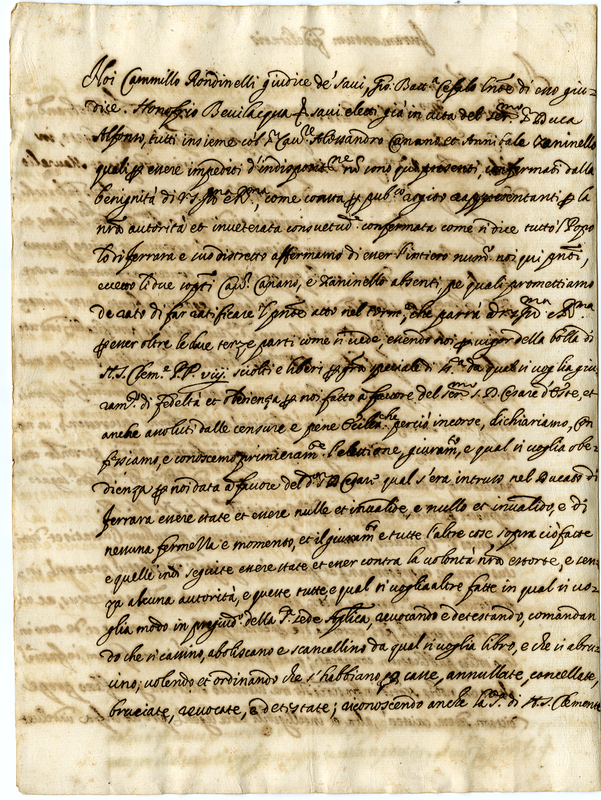 Noi Cammillo Rondinelli giudice de' Savi, Gio. Batt.a Cefalo di esso giu-
dice. Honoffrio Bevilacqua savi eletti già in vita del Ser.mo s.r Duca
Alfonso, tutti insieme col s.r Cav.re Alessandro Canano, et Annibale Zaninello
quali per essere impediti d'indispositne nõ sono qui presenti, confermati dalla
benignità di V.S. Ill.ma e R.ma, come consta per pub.co rogito rappresentanti per la
nr̃a autorità et inveterata consuetud.e confermata come si dice tutto 'l Popo
lo di ferrara e suo distretto affermamo di esser l'intiero num.o noi qui pñti,
eccetto li due Cav.r Canano, e Zaninello absenti, pe quali promettiamo
de rato di far ratificare il pñte atto nel term.e che parrà à V.S. Ill.ma e R.ma
per esser oltre le due terze parti come si vede, essendo noi per vigor della bolla di
N.S. Clem.e P.P. viij. sciolti e liberi per gr̃a speciale di da qual si voglia giu
ram.to di fedeltà et obedienza per noi fatto à favore del ser.mo s. D. Cesare d'Este, et
anche assoluti dalle censure e pene Eccl.che perciò incorse, dichiariamo, con
fessiamo, e conoscemo primieram.e l'elettione, giuram.to, e qual si voglia obe-
dienza per noi data à favore del d.o s. D. Cesare qual s'era intruso nel Ducato di
ferrara essere state et essere nulle et invalide, e nullo et invalido, e di
nessuna fermezza e momento, et il giuram.to e tutte l'altre cose sopra ciò fatte
e quelle indi seguite essere state et esser contra la volontà nr̃a estorte, e sen-
za alcuna autorità, e queste tutte, e qual si voglia altre fatte in qual si vo-
glia modo in pregiud.o della S.ta Sede Ap.lica, revocando e detestando, comandan
do che si cassino, aboliscano e scancellino da qual si voglia libro, e che si abru
cino; volendo et ordinando che s'habbiano per casse, annullate, cancellate,
bruciate, revocate, e detestate; riconoscendo anche la di N.S. Clemente